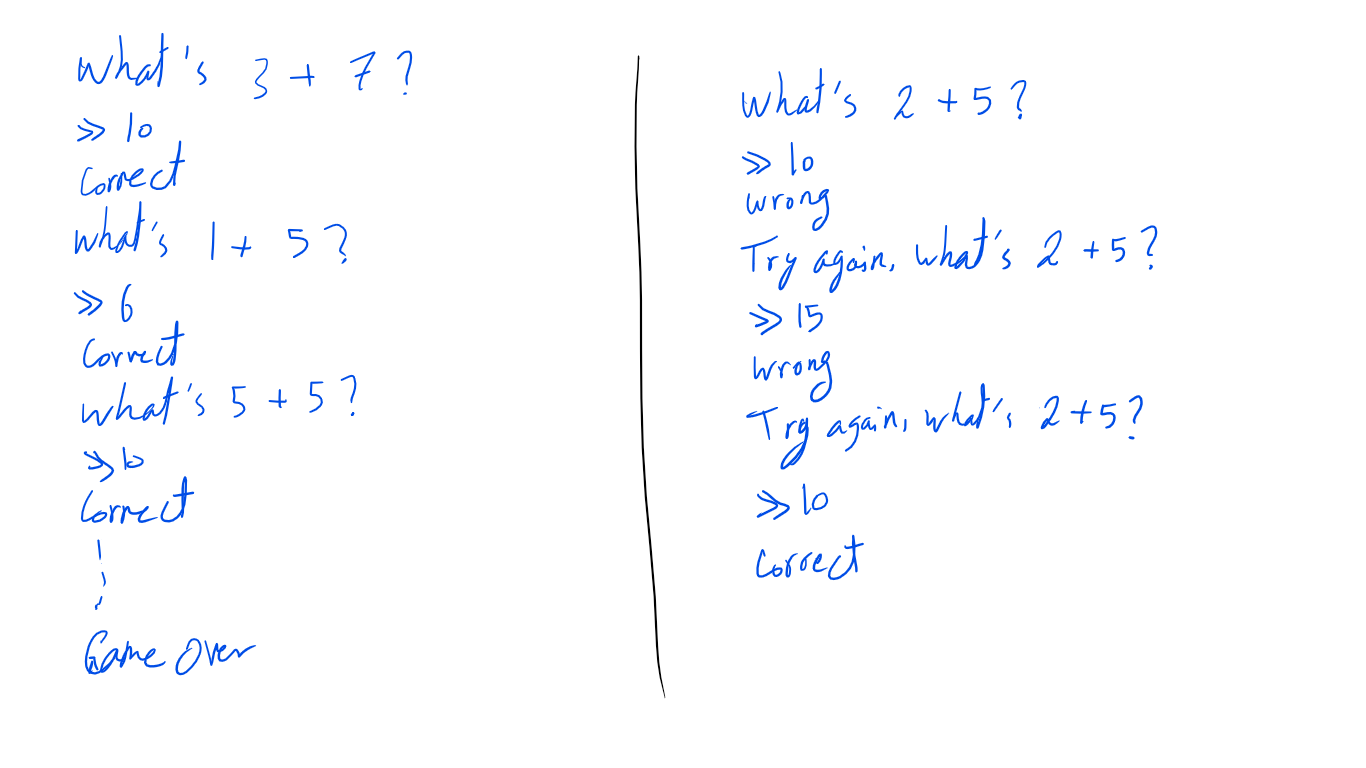 What's 3 + 7?
>> 10
Correct
What's 1 + 5?
>> 6
Correct
What's 5 + 5?
>> 10
Correct
Game Over
What's 2 + 5?
>> 10
wrong
Try again, what's 2 + 5?
>> 15
wrong
Try again, what's 2 + 5?
>> 10
Correct